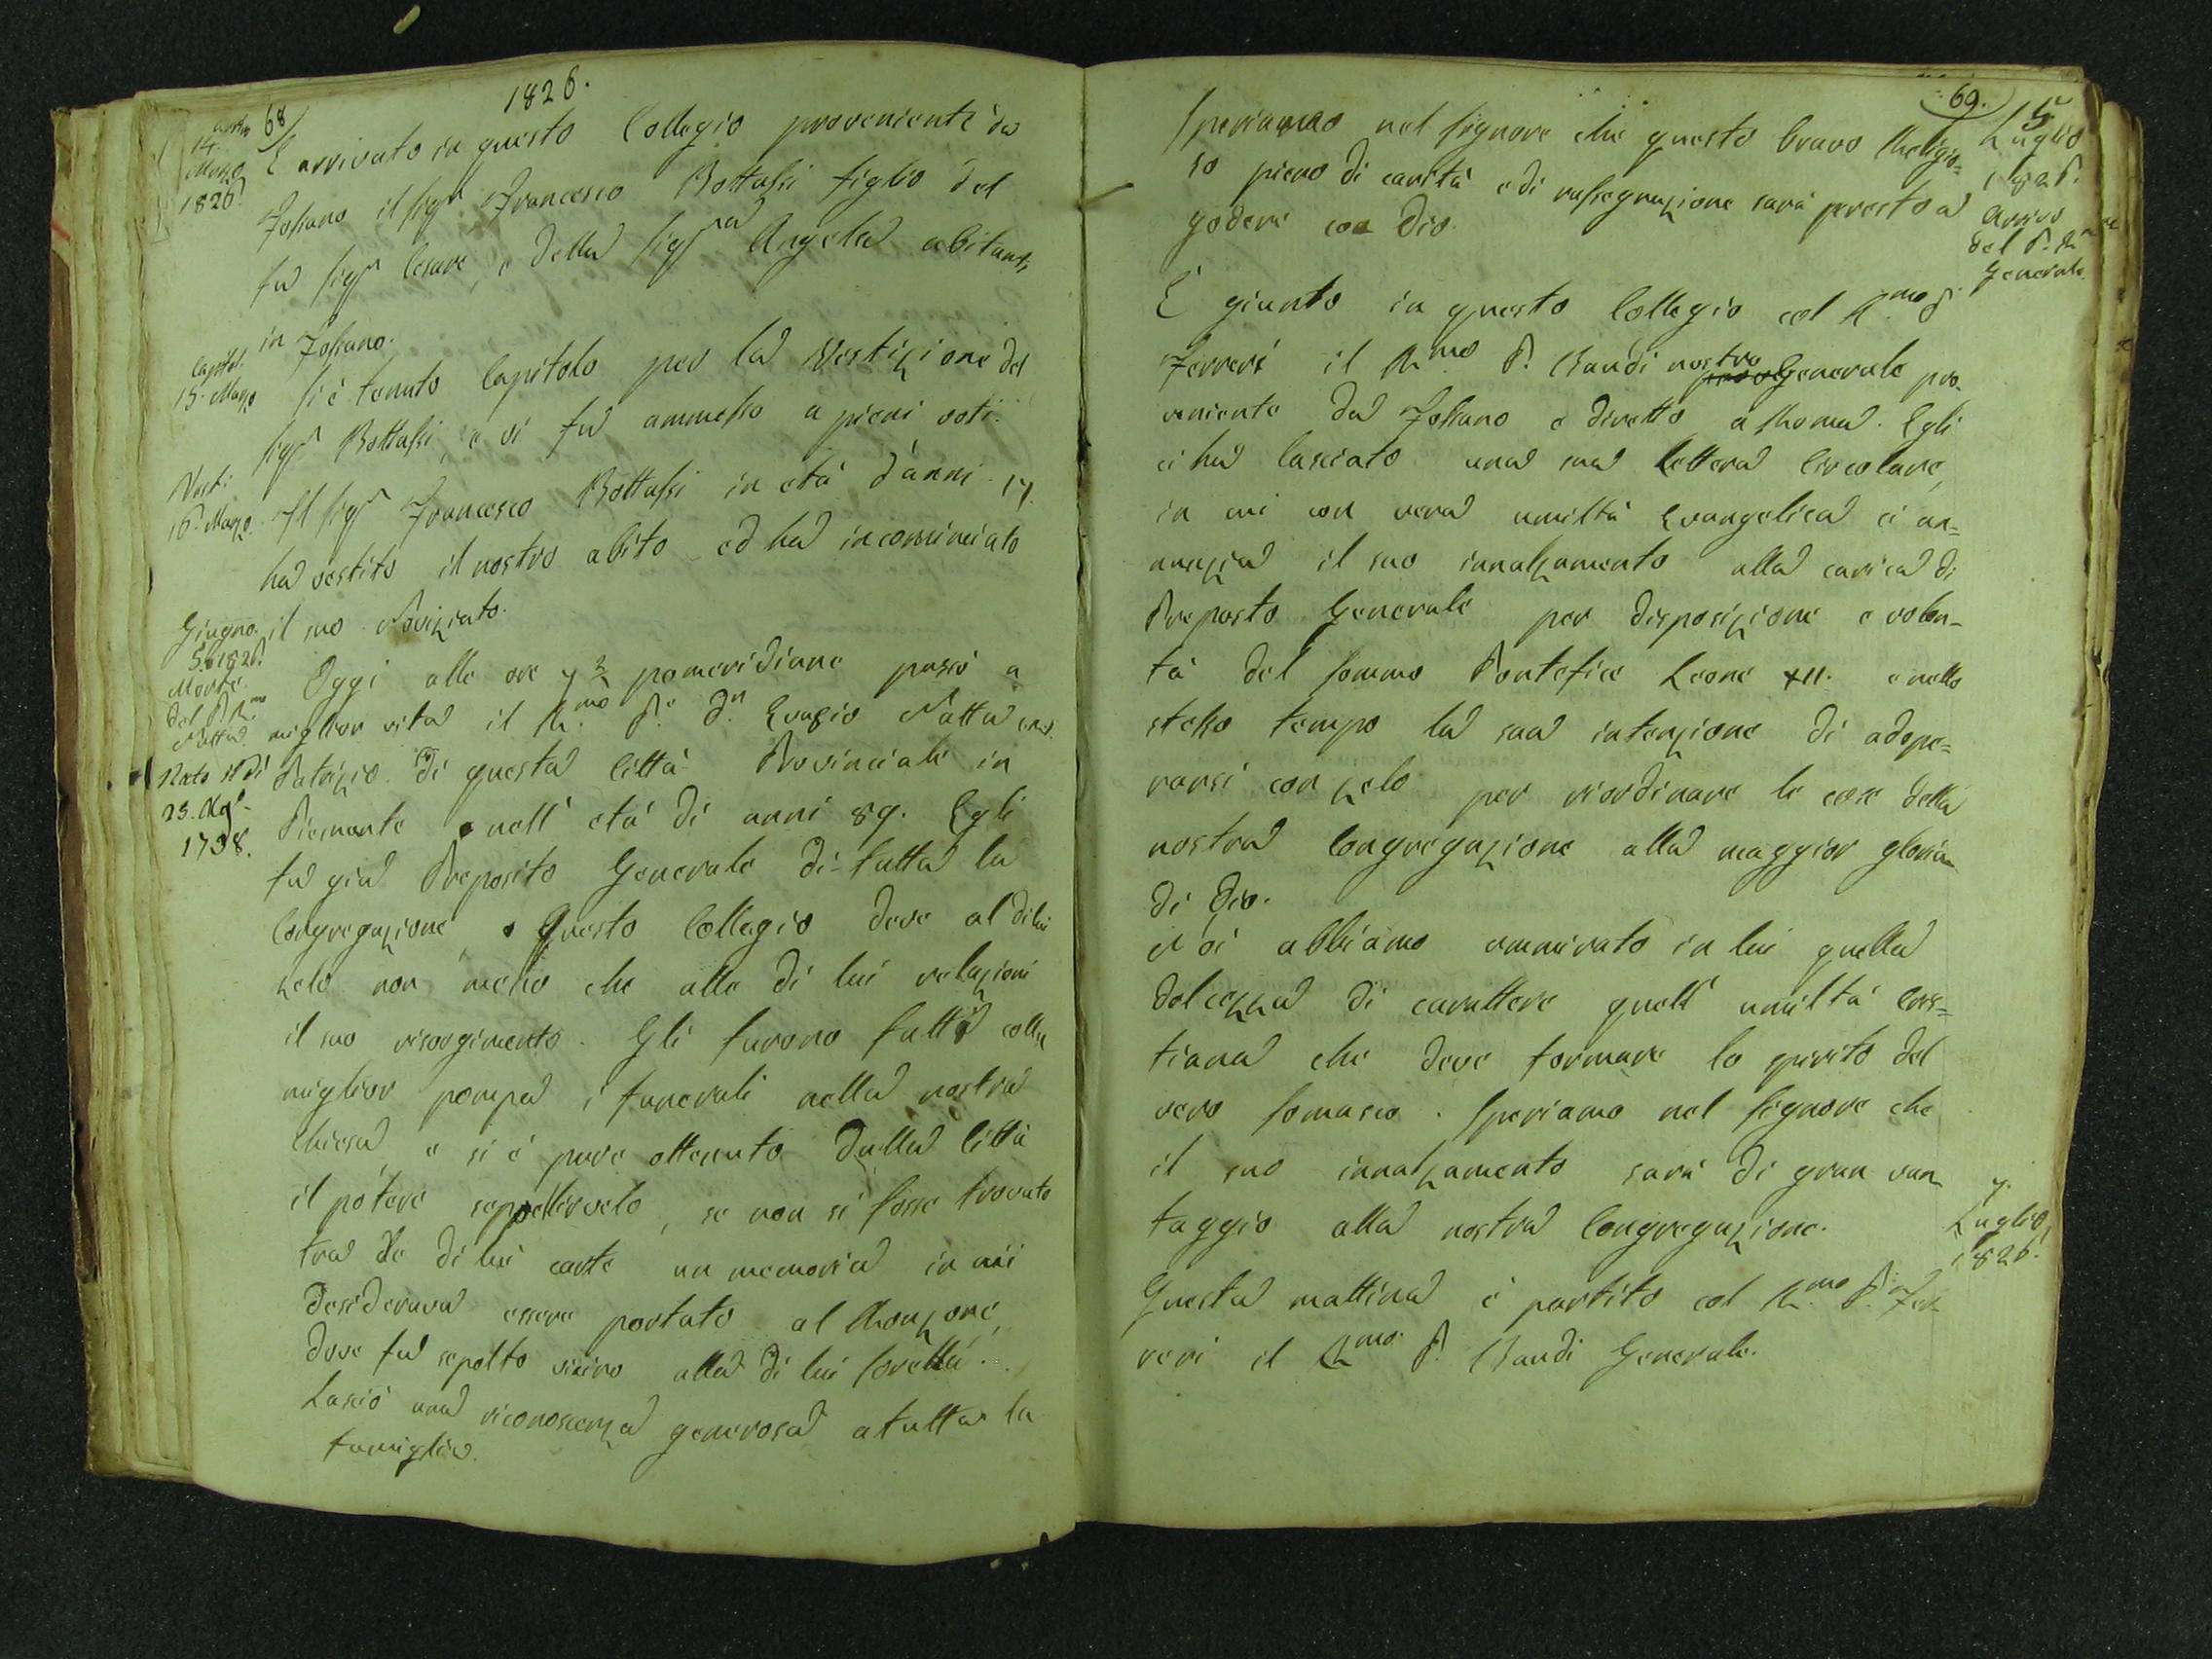 68
1826.
14.
Marzo
1826.
È arrivato in questo Collegio proveniente da
Fossano il Sigr Francesco Bottassi figlio del
fu Sigr Cesare, e della Sigra Angela abitanti
in Fossano.
Capitol.
15. Marzo
Si è tenuto Capitolo per la Vestizione del
Sigr Bottassi, e vi fu ammesso a pieni voti.
Vest:
16. Marzo.
Il Sigr Francesco Bottassi in età d'anni 17.
ha vestito il nostro abito ed ha incominciato
il suo Noviziato.
Giugno.
5. 1826.
Morte
del P. R.mo
Natta.
Oggi alle ore 7 2 pomeridiane passò a
miglior vita il R.mo P.e Dn. Evasio Natta
Nato il dì
23.
1738.
Patrizio di questa Città Provinciale in
Piemonte nell' età di anni 89. Egli
fu già Preposito Generale di tutta la
Congregazione, Questo Collegio deve al di lui
zelo non meno che alle di lui relazioni
il suo risorgimento. Gli furono fatti colla
miglior pompa i funerali nella nostra
Chiesa e si è pure ottenuto dalla Città
il potere seppellirvelo, se non si fosse trovato
tra le di lui carte un memoria in cui
desiderava essere portato al Ronzone,
dove fu sepolto vicino alla di lui sorella.
Lasciò una riconoscenza generosa a tutta la
famiglia.
69.
Speriamo nel Signore che questo bravo Religio-
so pieno di carità e di rassegnazione sarà presto a
godere con Dio.
5
Luglio
1826.
Arrivo
del P. Rmo
Generale.
È giunto in questo Collegio col R.mo P.
Ferreri il R.mo P. Baudi nostro Generale pro-
veniente da Fossano e diretto a Roma. Egli
ci ha lasciato una sua lettera Circolare,
in cui con vera umiltà Evangelica ci an-
nunzia il suo innalzamento alla carica di
Preposto Generale per disposizione e volon-
tà del Sommo Pontefice Leone XII. e nello
stesso tempo la sua intenzione di adope-
rarsi con zelo per riordinare le cose della
nostra Congregazione alla maggior gloria
di Dio.
Noi abbiamo ammirato in lui quella
dolcezza di carattere quell' umiltà Cris-
tiana che deve formare lo spirito del
vero Somasco. Speriamo nel Signore che
il suo innalzamento sarà di gran van
taggio alla nostra Congregazione.
7.
Luglio
1826.
Questa mattina è partito col R.mo P. Fer
reri il R.mo P. Baudi Generale.